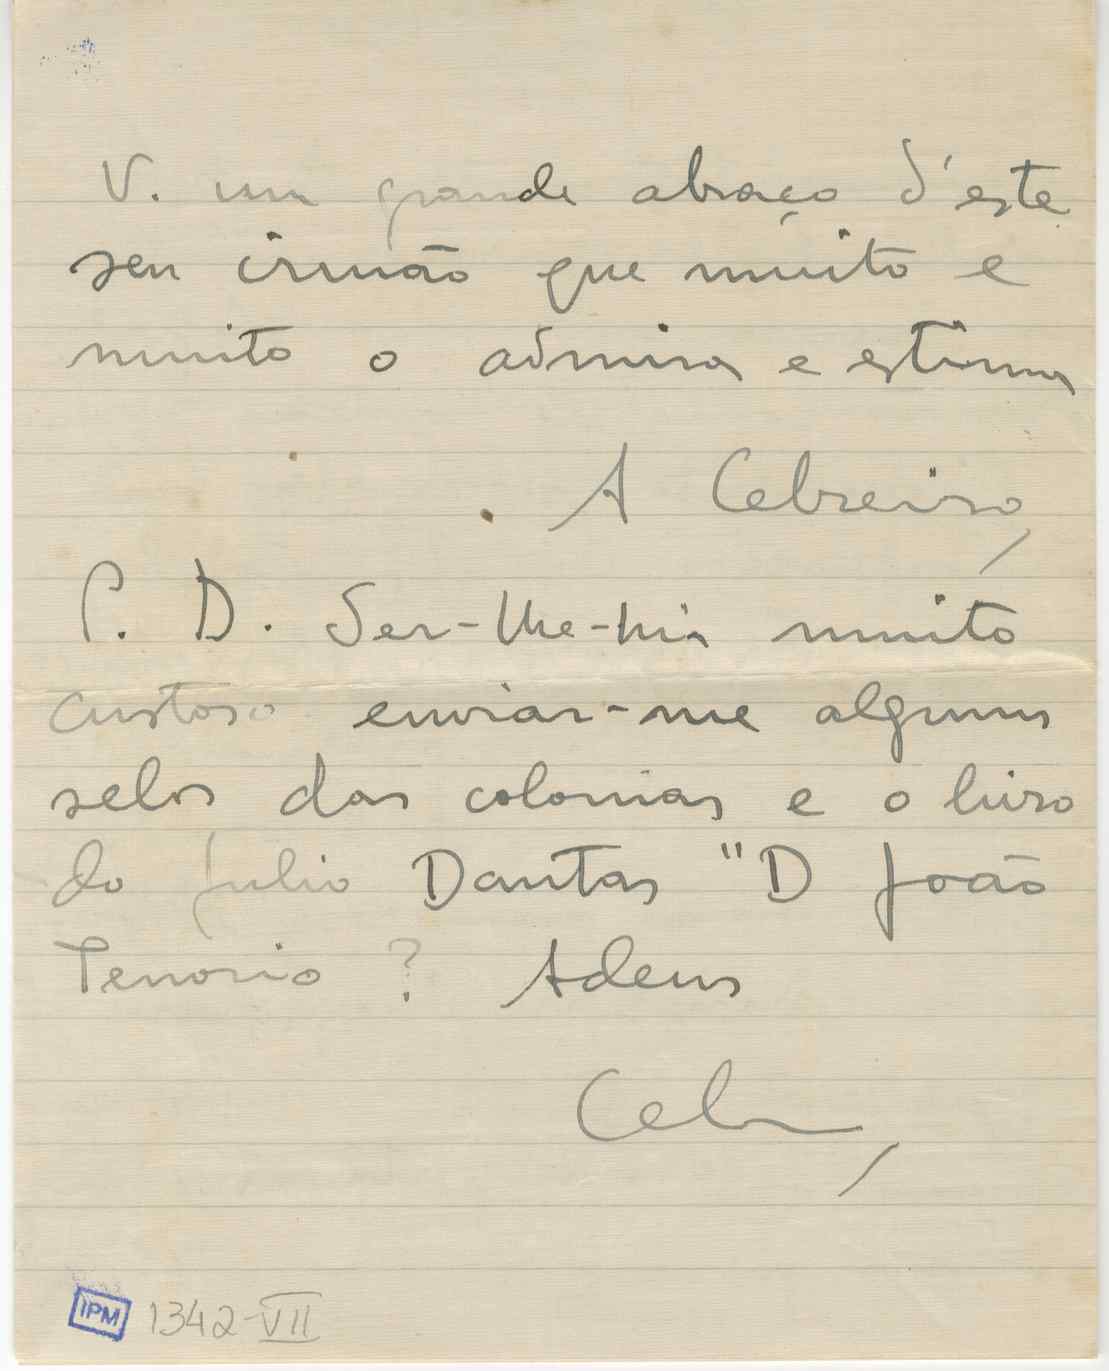 V. um grande abraço d'este
seu irmão que muito e
muito o admira e estima
A Cebreiro
P. D. Ser-lhe-hia muito
custoso enviar-me alguns
selos das colonias e o livro
do Julio Dantas "D João
Tenorio ? Adeus
Ceb
IPM 1342-VII